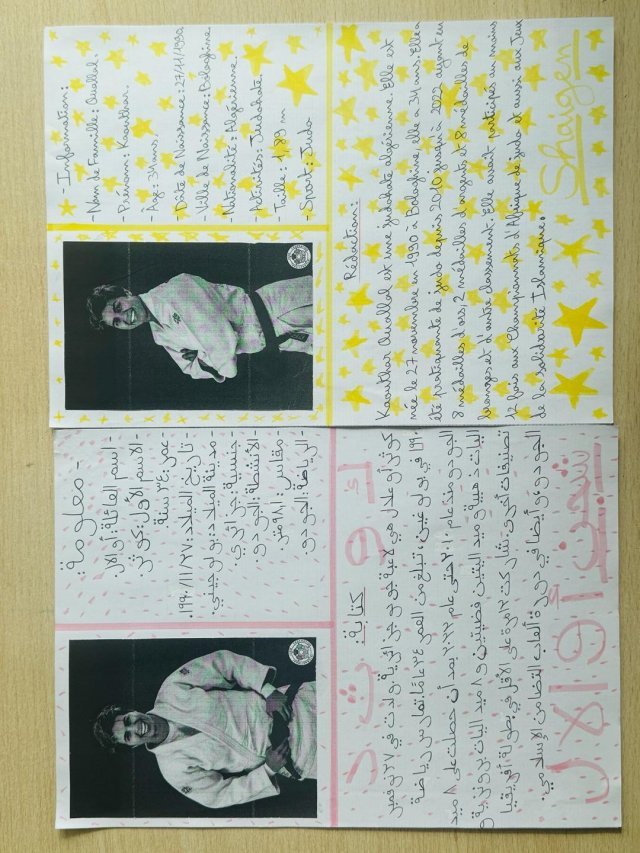 - Information:
- Nom de Famille: Ouallal.
- Prénom: Kaouthar.
- Age: 34 ans.
- Dâte de Naissance: 27/11/1990.
- Ville de Naissance: Bologhine.
- Nationalité: Algérienne.
- Activités: Judokate.
- Taille: 1,89 m
- Sport: Judo
Rédaction:
Kaouthar Ouallal est une judokate algérienne. Elle est
née le 27 novembre en 1990 à Bologhine, elle a 34 ans. Elle a
été pratiquante de judo depuis 2010 jusqu'à 2022 ayant eu
8 médailles d'ors, 2 médailles d'argents et 8 médailles de
bronzes et d'autre classement. Elle avait participés au moins
12 fois aux Championnats d'Afrique de judo et aussi aux Jeux
de la solidarité Islamique.
Shaigen
- معلومة:
- اسم العائلة: أوالال.
- الاسم الأول: كوثر.
- عمر: ٣٤ سنة
- تاريخ الميلاد: ١٩٩٠/١١/٢٧.
- مدينة الميلاد: بولوجيني.
- جنسية: جزائري.
- الأنشطة: الجودو.
- مقاس: ١٨٩ متر.
- الرياضة: الجودو.
كتابة:
كوثر أوعلال هي لاعبة جودو جزائرية ولدت في ٢٧ نوفمبر
١٩٩٠ في بولوغين، تبلغ من العمر ٣٤ عامًا تمارس رياضة
الجودو منذ عام ٢٠١٠ حتى عام ٢٠٢٢ بعد أن حصلت على ٨ ميد
اليات ذهبية و ميداليتين فضيتين و ٨ ميداليات برونزية و
تصنيفات أخرى. شاركت ١٢ مرة على الأقل في بطولة أفريقيا
الجودو، و أيضا في دورة ألعاب التضامن الإسلامي.
كوثر
أوالال